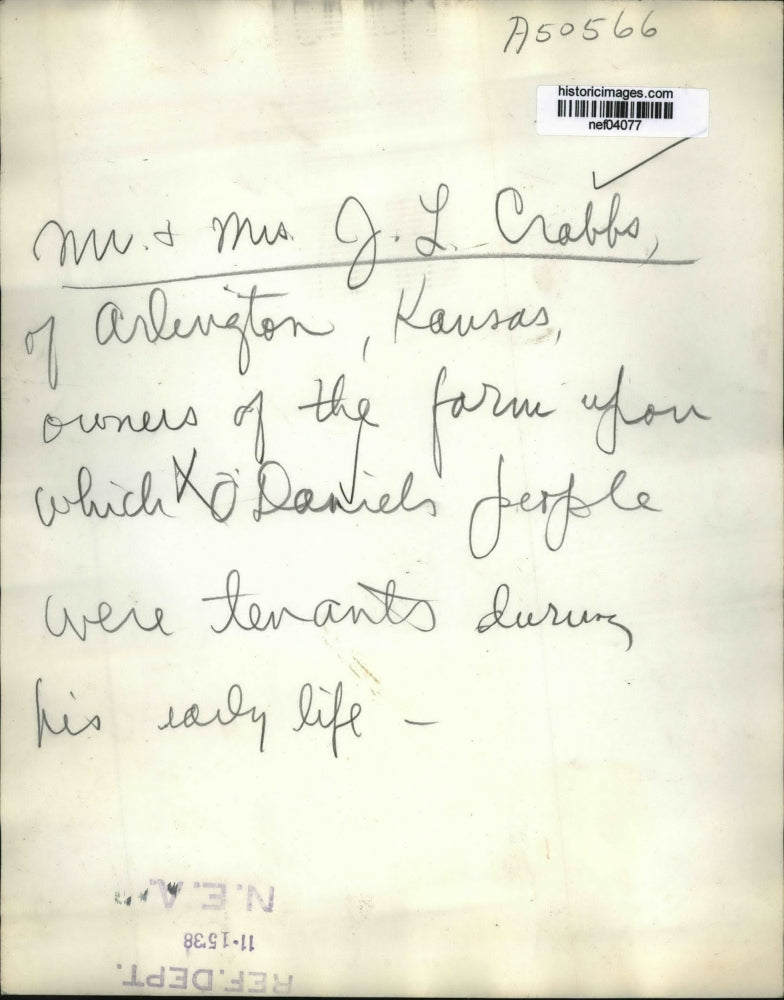 A50566
historicimages.com
nef04077
Mr. & Mrs. J. L. Crabbs,
of Arlington, Kansas,
owners of the farm upon
which O'Daniels people
were tenants during
his early life -
N.E.A.
11-1538
REF. DEPT.